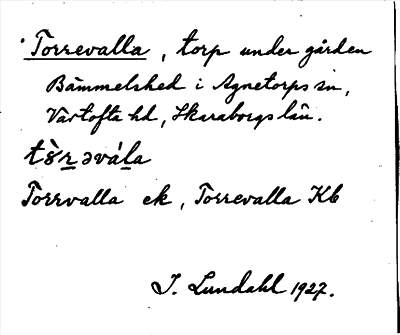 Torrevalla, torp under gården
Bämmelshed i Agnetorps sn,
Vartofta hd, Skaraborgs län.
tòrəvála
Torrvalla ek, Torrevalla Kb
I. Lundahl 1927.